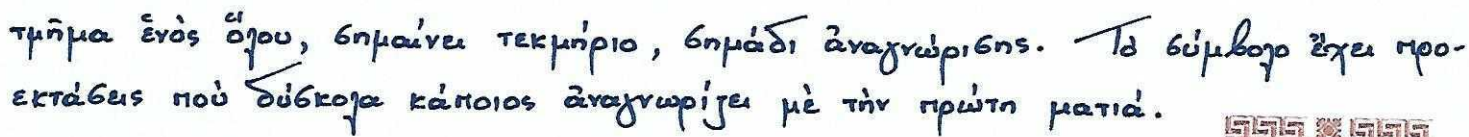 τμῆμα ἑνὸς ὅλου, σημαίνει τεκμήριο, σημάδι ἀναγνώρισης. Τὸ σύμβολο ἔχει προ-
εκτάσεις ποὺ δύσκολα κάποιος ἀναγνωρίζει μὲ τὴν πρώτη ματιά.